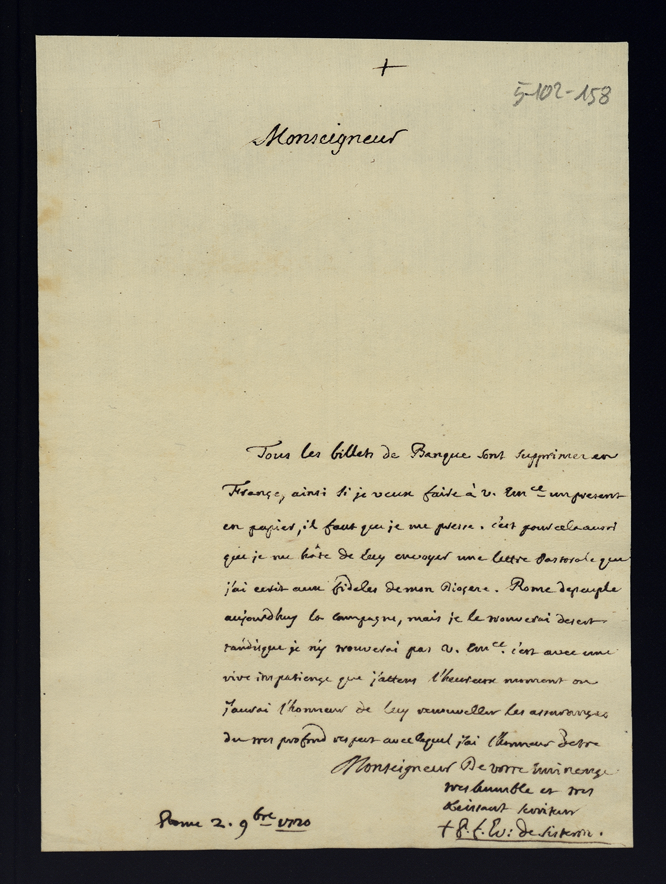 +
5-102-158
Monseigneur
Tous les billets de Banque sont supprimez en
France, ainsi si je veux faire à V. Em^ce un present
en papier, il faut que je me presse. c'est pour cela aussi
que je me hâte de luy envoyer une lettre Pastorale que
j'ai ecrit aux fideles de mon Diocese. Rome depeuple
aujourdhuy la campagne, mais je le trouverai desert
tandisque je n'y trouverai pas V. Em^ce. c'est avec une
vive impatience que j'attens l'heureux moment ou
j'aurai l'honneur de luy renouveller les assurances
du tres profond respect avec lequel j'ai l'honneur d'etre
Monseigneur De votre Eminence
tres humble et tres
obeissant serviteur
Rome 2. 9^bre 1720
+ P. f. Ev: de Sisteron.